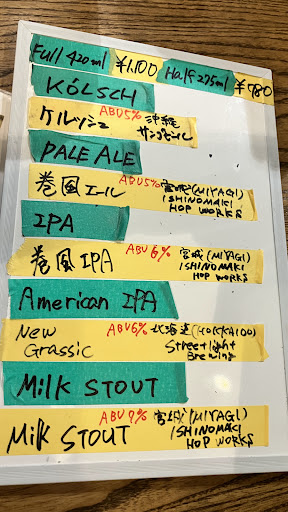 Full 420ml ¥1,100 Half 275ml ¥780
KÖLSCH
ケルッシュ ABV5% 沖縄
サンゴビール
PALE ALE
巻風エール ABV5% 宮城(MIYAGI)
ISHINOMAKI
HOP WORKS
IPA
巻風 IPA ABV6% 宮城(MIYAGI)
ISHINOMAKI
HOP WORKS
American IPA
New ABV6% 北海道(HOKKAIDO)
Grassic Streetlight
Brewing
Milk STOUT
Milk STOUT ABV7% 宮城(MIYAGI)
ISHINOMAKI
HOP WORKS